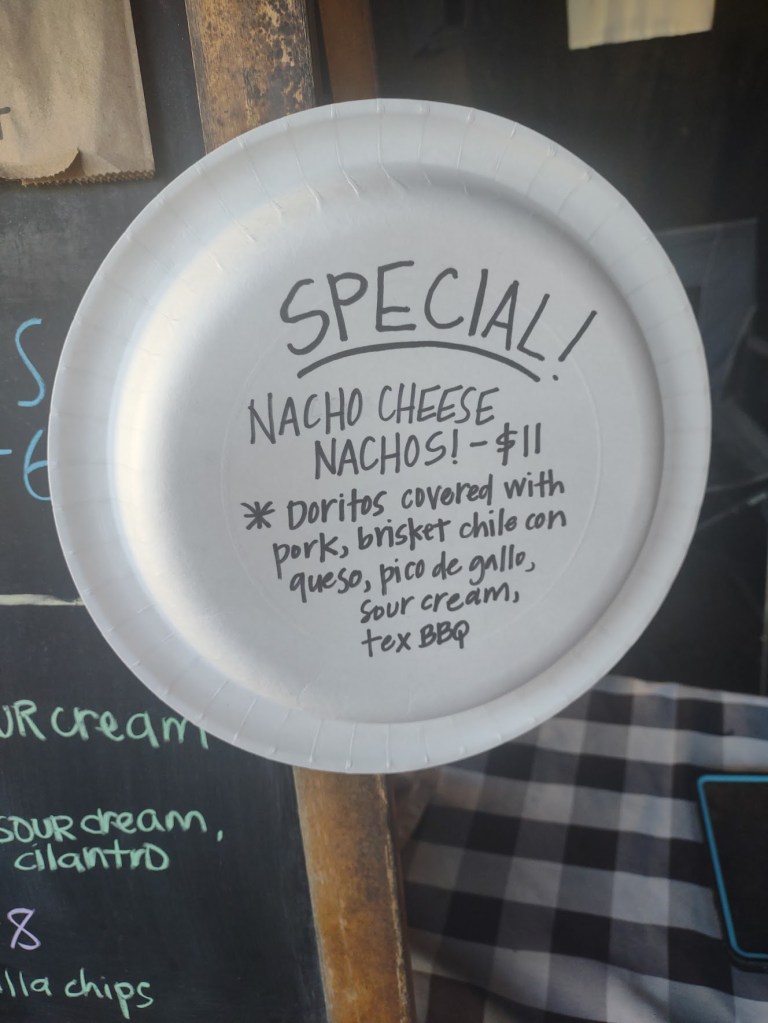 SPECIAL!
NACHO CHEESE
NACHOS! - $11
* Doritos covered with
pork, brisket chile con
queso, pico de gallo,
sour cream,
tex BBQ
UR cream
sour cream,
cilantro
8
lla chips